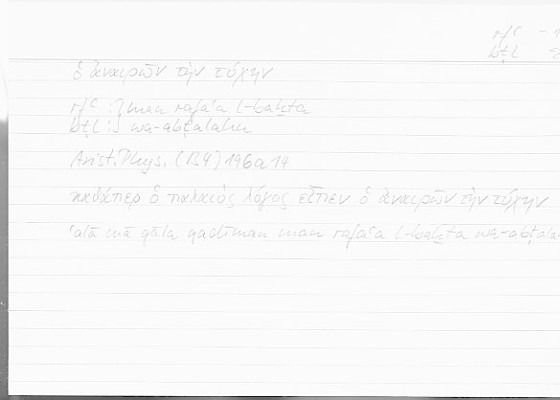 rfʿ - 1
bṭl 2
ὁ ἀναιρῶν τὴν τύχην
rfʿ :} man rafaʿa l-baḫta
bṭl :} wa-abṭalahu
Arist. Phys. (B4) 196a 14
καθάπερ ὁ παλαιὸς λόγος εἶπεν ὁ ἀναιρῶν τὴν τύχην
ʿalā mā qāla qadīman man rafaʿa l-baḫta wa-abṭala